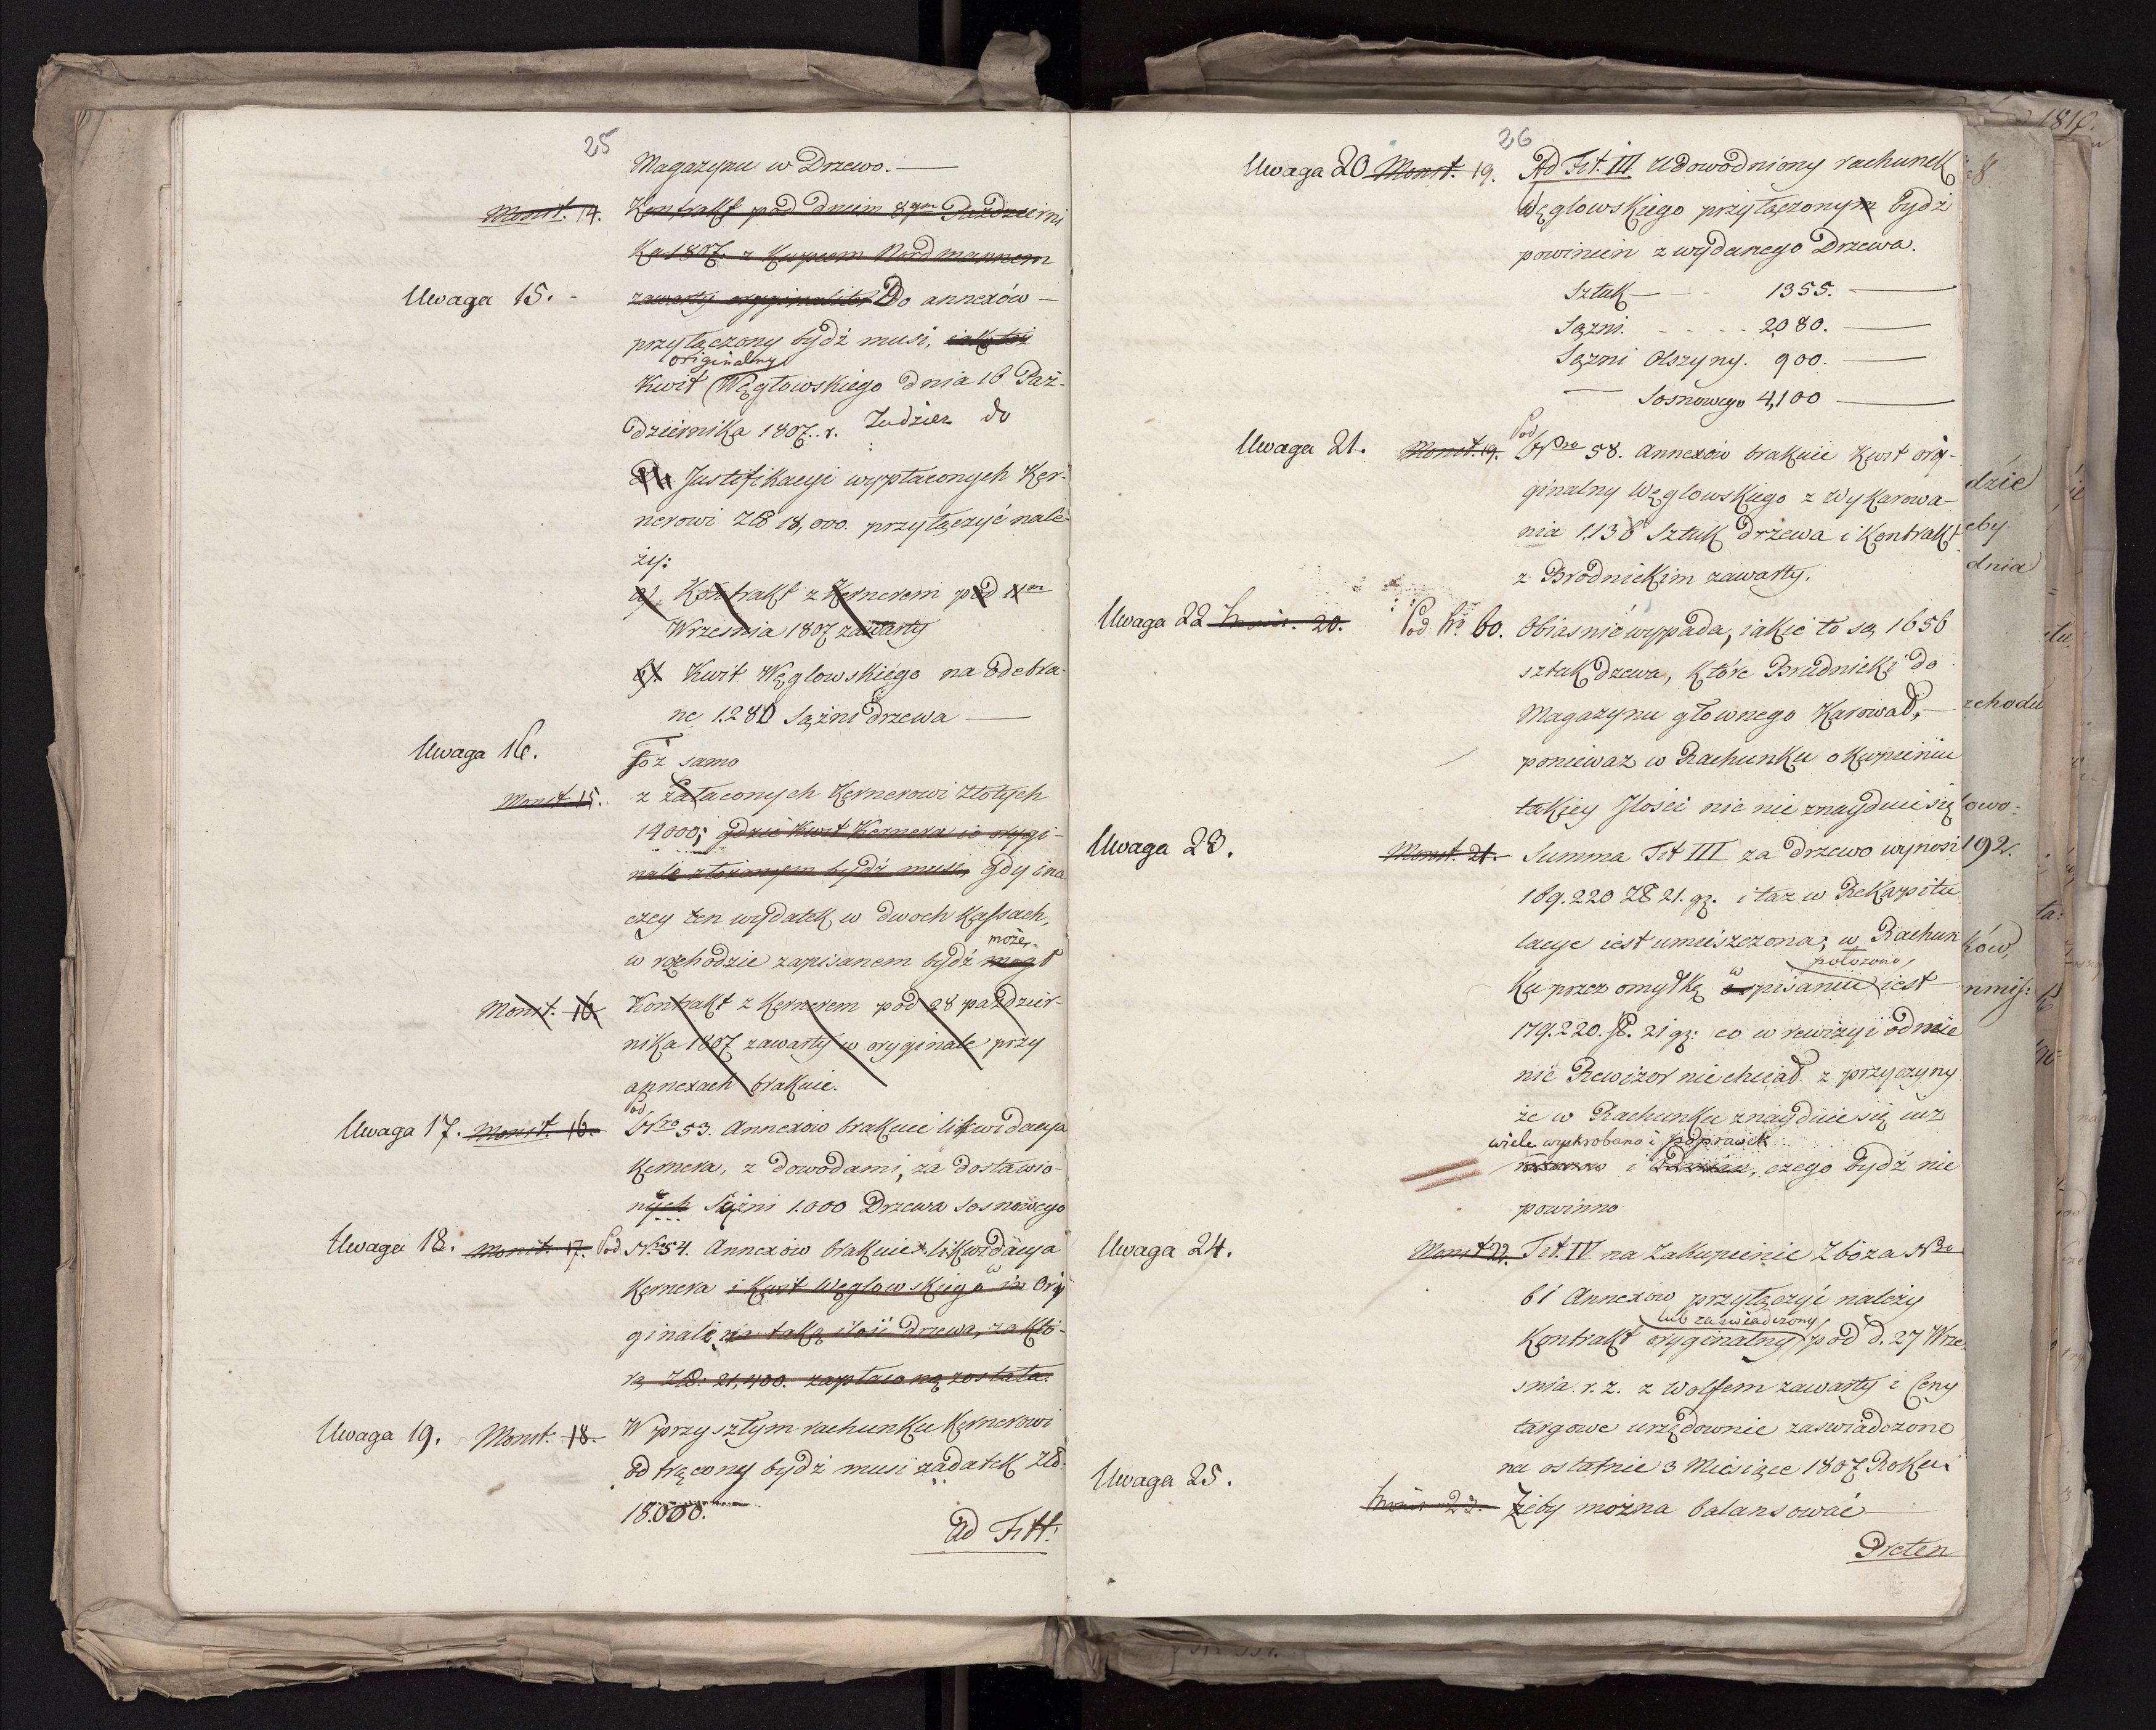 25
Magazynu w Drzewo. —
Monit. 14. Kontrakt pod dniem 8ym Październi
Ka 1807. z Kupcem Nordmannem
Uwaga 15. - zawarty oryginaliter Do annexów —
przyłączony bydź musi, iak też
originalny
Kwit Węgłowskiego dnia 16 Paź-
dziernika 1807. r. Tudzież do
Justifikacyi wypłaconych Ker-
nerowi Zł 18,000. przyłączyć nale-
ży:
a). Kontrakt z Kernerem pod 11m
Września 1807 zawarty
b). Kwit Węglowskiego na odebra-
ne 1.280 Sążni drzewa —
Uwaga 16. Toż samo
Monit 15. z Załaconych Kernerowi złotych
14000; gdzie Kwit Kernera in orygi-
nale złożonym bydź musi, gdy ina
czey ten wydatek w dwoch Kassach,
może
w rozhodzie zapisanem bydź mogł
Monit. 16. Kontrakt z Kernerem pod 28 paździer-
nika 1807 zawarty w oryginale przy
annexach brakuie.
Pod
Uwaga 17. Monit. 16. Nro 53. Annexów brakuie likwidacya
Kernera, z dowodami, za dostawio-
nych Sążni 1.000 Drzewa sosnowego
Uwaga 18. Monit. 17. Pod Nro 54. Annexów brakuie likwidacya
w
Kernera i Kwit Węglowskiego in Ory
ginale na taką ilość drzewa, za któ-
rą Zł: 21,400. zapłacono została.
Uwaga 19. Monit. 18. W przyszłym rachunku Kernerowi
odtrącony bydź musi zadatek Zł.
18.000.
Ad Titt.
26
Uwaga 20 Monit. 19. Ad Tit. III Udowodniony rachunek
Węglowskiego przyłączonym bydź
powinien z wydanego Drzewa.
Sztuk — 1355. —
Sążni. - - - - 2,080. —
Sążni Olszyny. 900. —
— Sosnowego 4,100 —
Pod
Uwaga 21. Monit. 19. Nro 58. Annexów brakuie Kwit ory-
ginalny Węglowskiego z Wykarowa-
nia 1.138 Sztuk drzewa i Kontrakt
z Brodnickim zawarty.
Uwaga 22 Monit. 20. Pod Nro 60. Obiasnić wypada, iakie to są 1656
sztuk drzewa, które Brudnicki do
Magazynu głownego Karował, —
ponieważ w Rachunku o Kupieniu
takiey Jlości nic nie znayduie się
Uwaga 23. Monit. 21. Summa Tit III za drzewo wynosi
169.220 Zł 21. gz. i taz w ReKapitu
lacye iest umieszczona; w Rachun
położono
w
Ku przez omyłkę pisaniu iest
179.220. Zł. 21 gz: co w rewizyi odmie
nić Rewizor nie chciał z przyczyny
że w Rachunku znayduie się iuz
wiele wyskrobano i poprawek
i , czego bydź nie
powinno
Uwaga 24. Monit 22. Tit. IV na Zakupienie Zboża Nro
61 Annexów przyłączyć należy
lub zaświadczony
Kontrakt oryginalny pod d. 27 Wrze
snia r. z. z Wolffem zawarty i Ceny
targowe urzędownie zaswiadczone
na ostatnie 3 Miesiące 1807 Roku.
Uwaga 25. Monit 23. Żeby można balansować —
Preten
1810.
dzie
eby
dnia
zchodu
owo-
192.
ta:
ków,